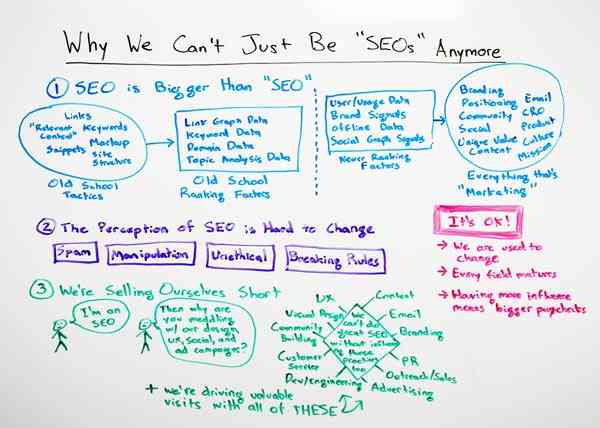 Why We Can't Just Be "SEOs" Anymore
① SEO is Bigger than "SEO"
Links
"Relevant Content" Keywords
Snippets Markup
Site Structure
Old School
Tactics
Link Graph Data
Keyword Data
Domain Data
Topic Analysis Data
Old School
Ranking Factors
User/Usage Data
Brand Signals
Offline Data
Social Graph Signals
Newer Ranking
Factors
Branding
Positioning Email
Community CRO
Social Product
Unique Value Culture
Content Mission
Everything that's
"Marketing"
② The Perception of SEO is Hard to Change
Spam Manipulation Unethical Breaking Rules
It's OK!
→ We are used to
change
→ Every field matures
→ Having more influence
means bigger paychecks
③ We're Selling Ourselves Short
I'm an
SEO
Then why are
you meddling
w/ our design,
UX, social, and
ad campaigns?
UX
Visual Design
Community
Building
Customer
Service
Dev/Engineering
We
can't do
great SEO
without influencing
these
practices
too
Content
Email
Branding
PR
Outreach/Sales
Advertising
+ we're driving valuable
visits with all of THESE